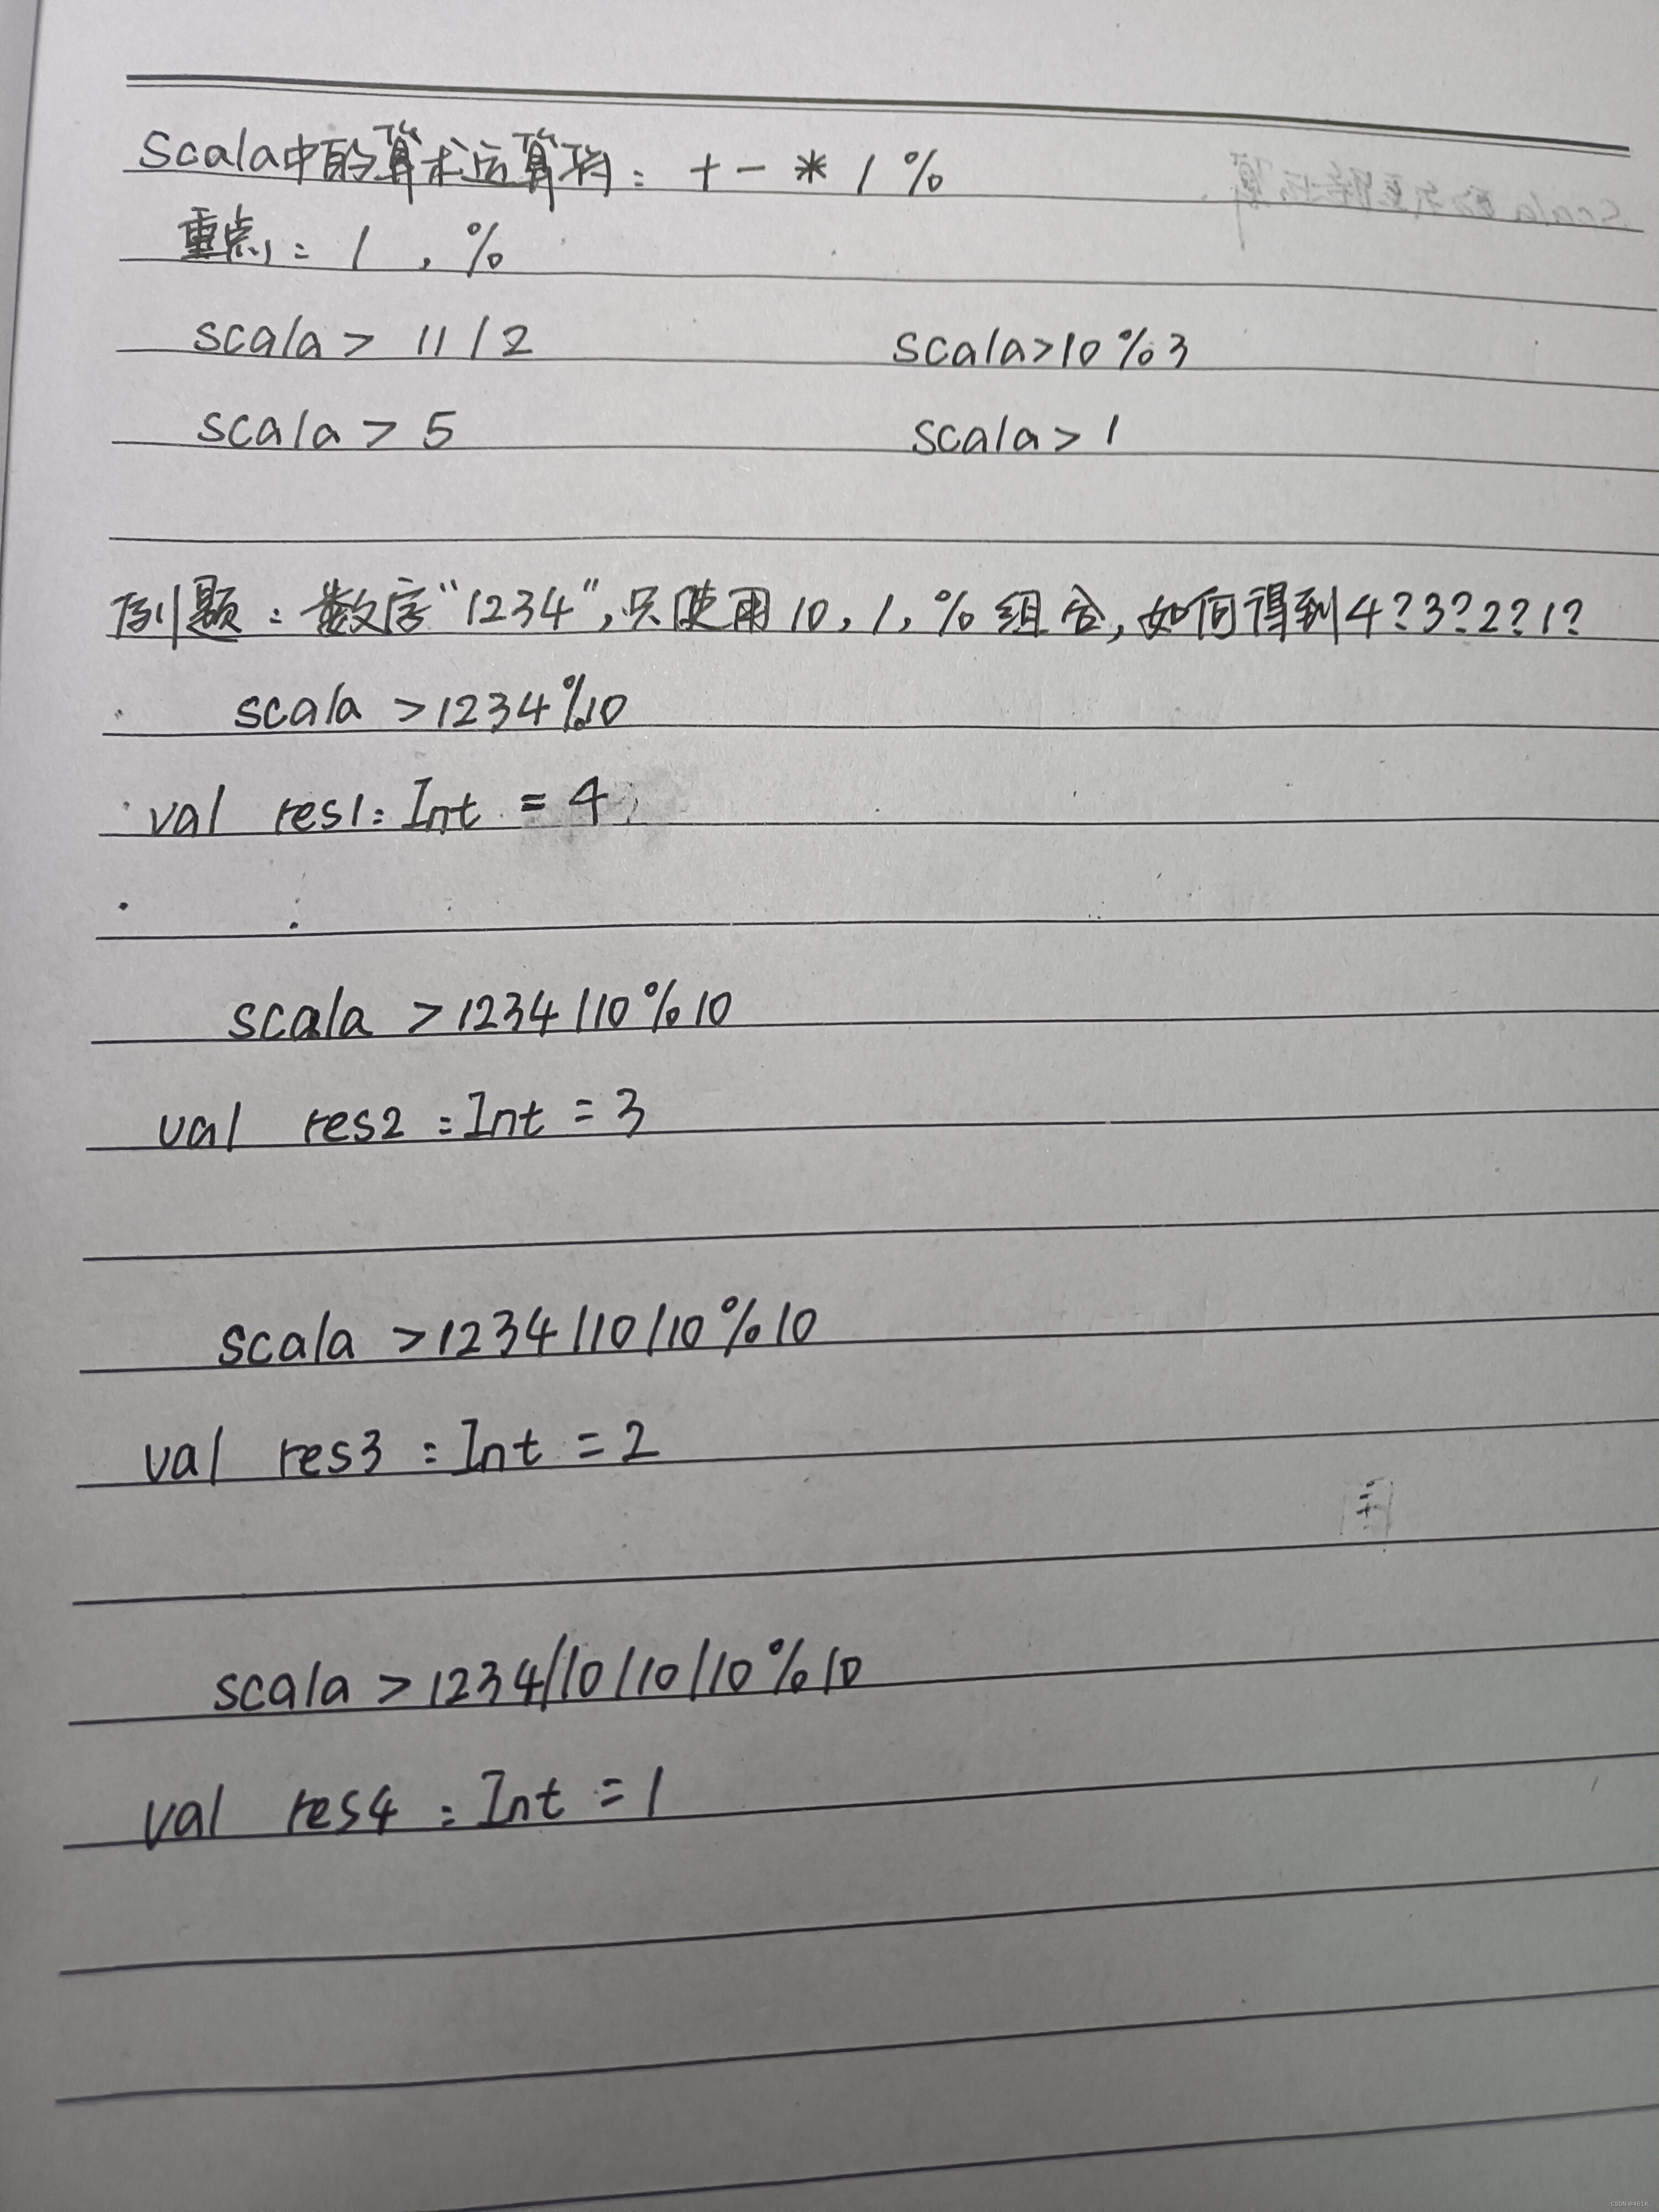 Scala中的算术运算均: + - * / %
重点: / , %
scala > 11 / 2 scala>10%3
scala > 5 scala> 1
例题: 数字“1234”,只使用10, /, %组合,如何得到4?3?2?1?
scala >1234%10
val res1: Int = 4
scala >1234/10%10
val res2 : Int = 3
scala >1234/10/10%10
val res3 : Int = 2
scala >1234/10/10/10%10
val res4 : Int = 1